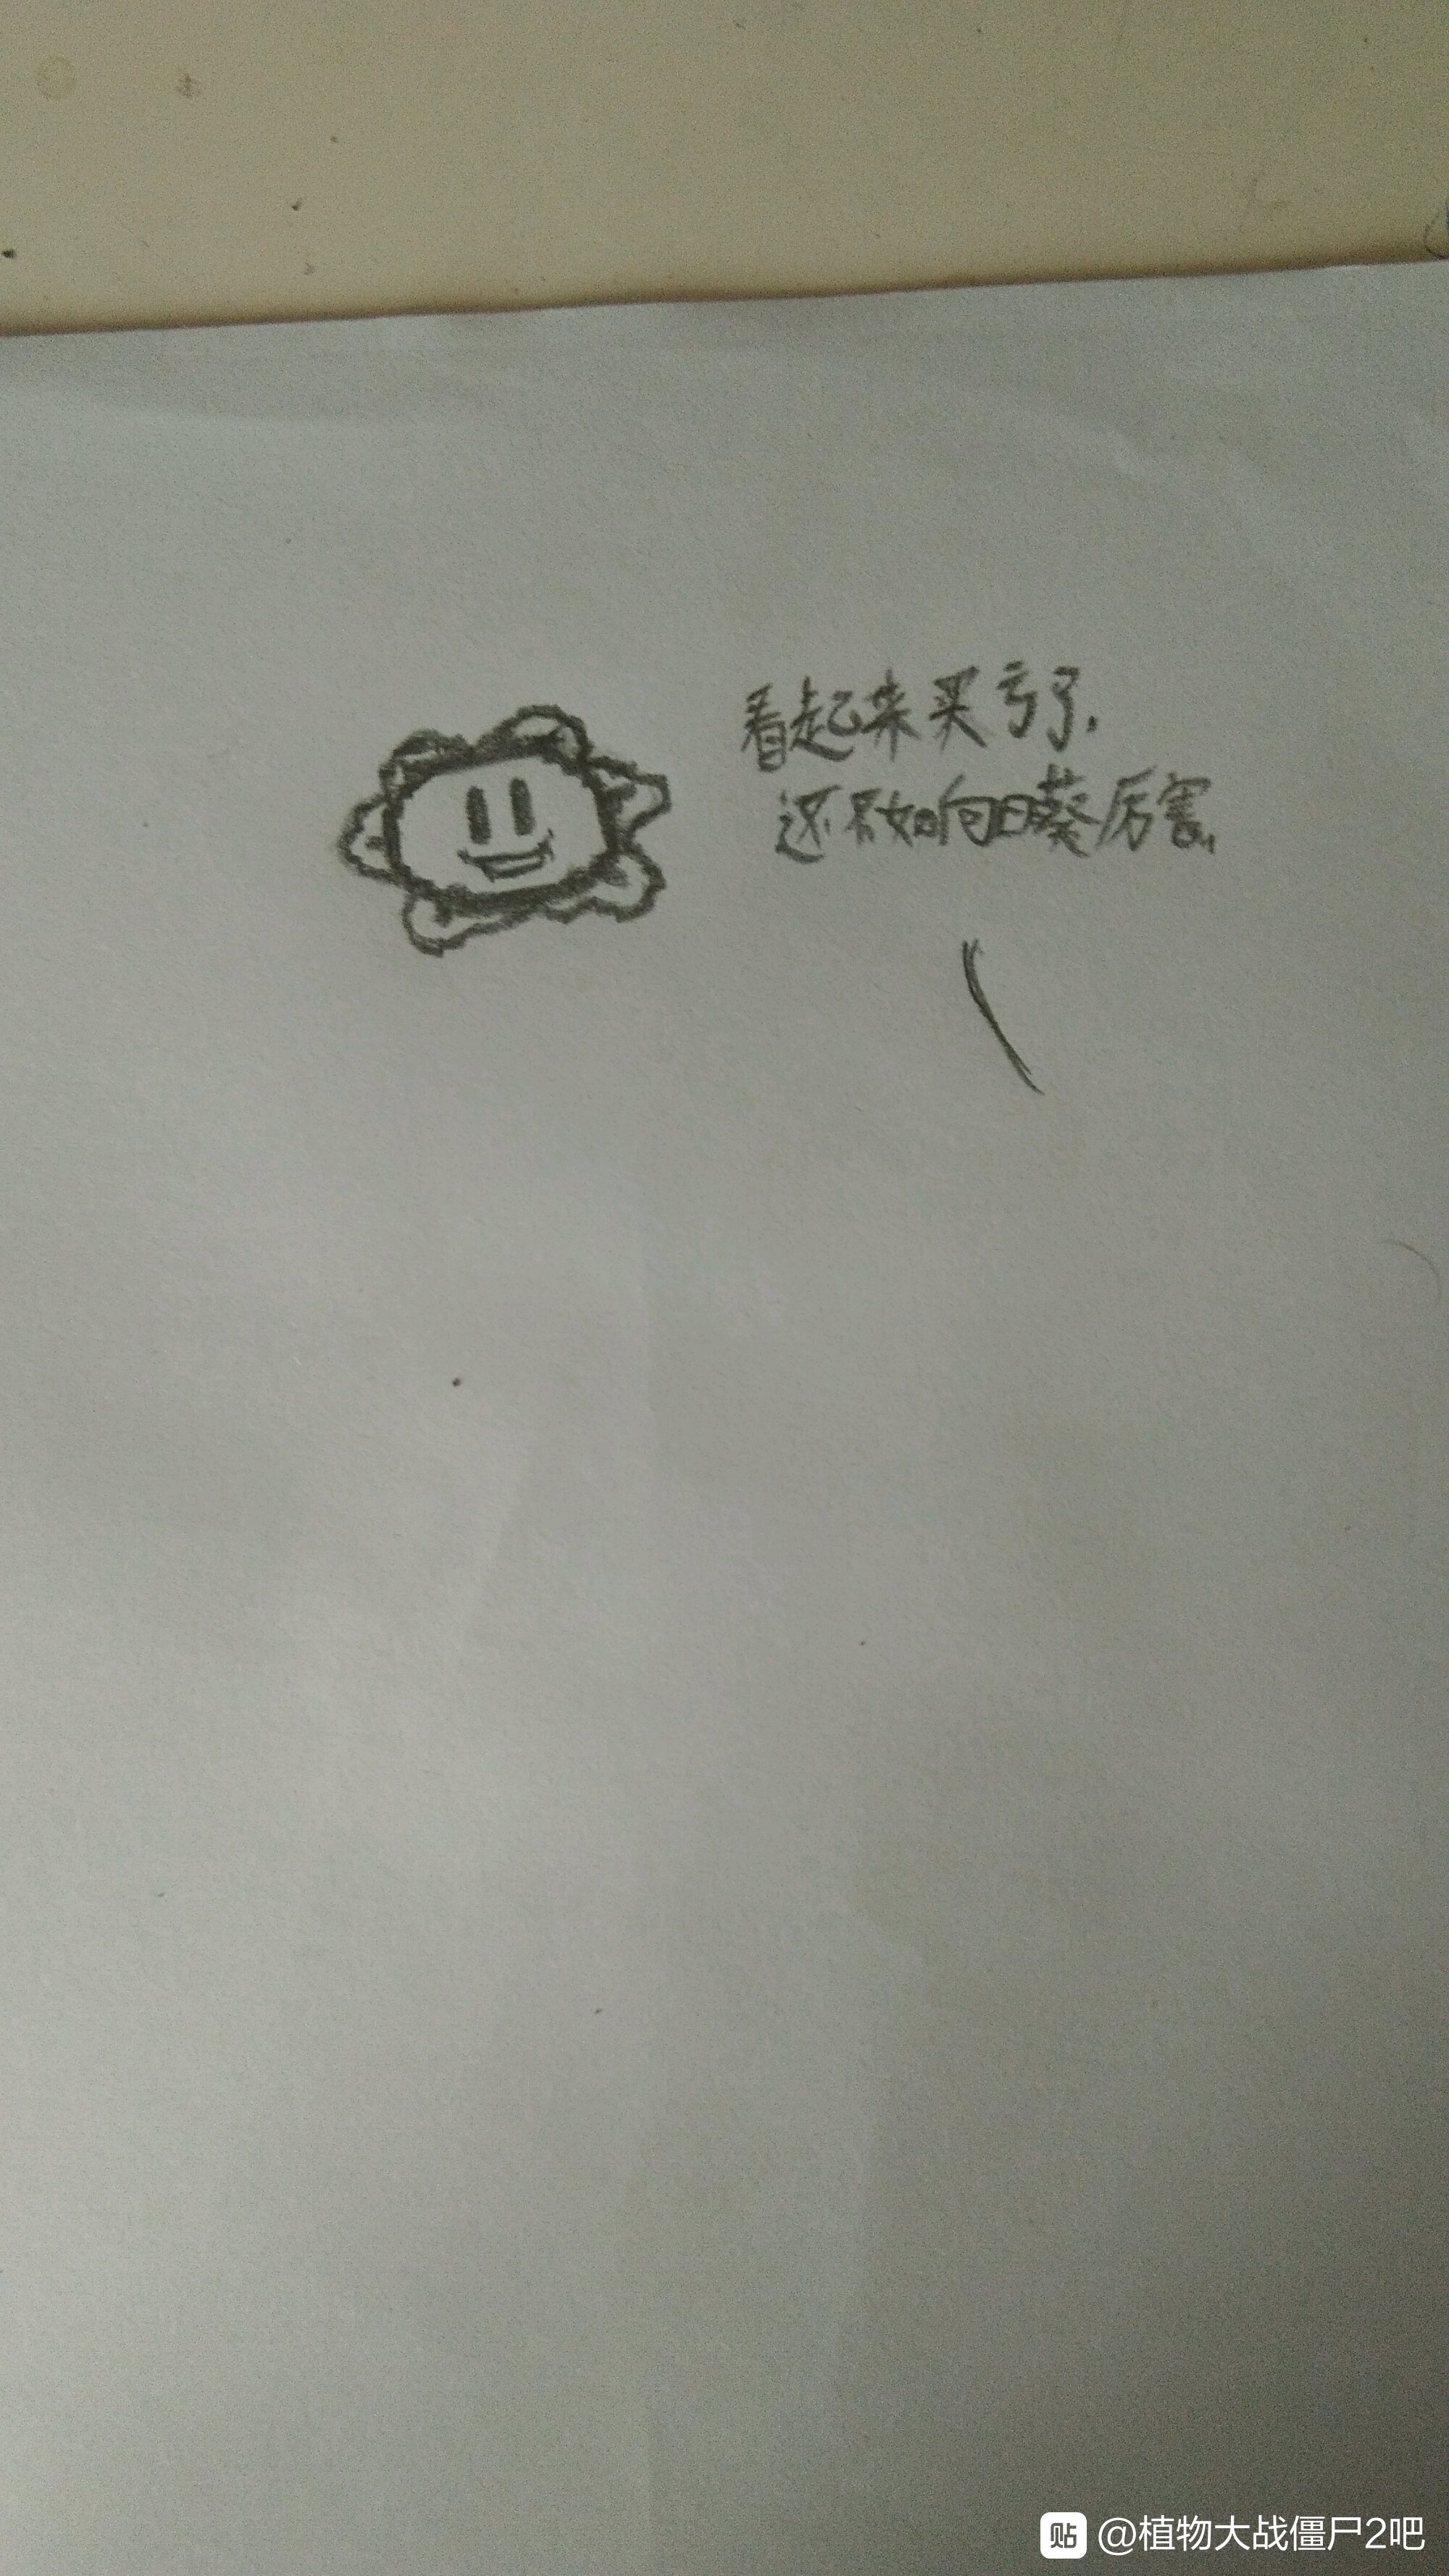 看起来买亏了.
还不如向日葵厉害,
贴 @植物大战僵尸2吧